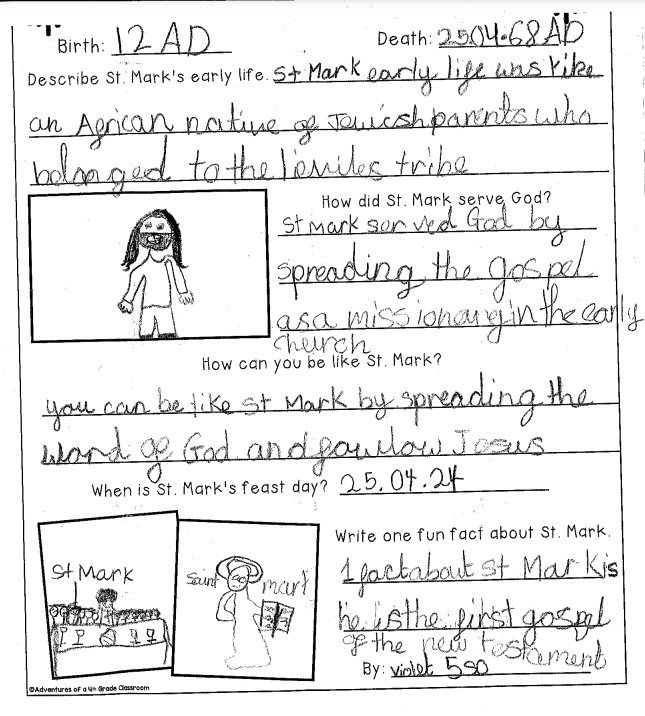 Birth: 12 AD Death: 25.04.68AD
Describe St. Mark's early life. St Mark early life was like
an African native of Jewicsh parents who
belonged to the leviles tribe
How did St. Mark serve God?
St mark served God by
spreading the gospel
as a missionary in the early
church
How can you be like St. Mark?
you can be like St Mark by spreading the
word of God and fowlow Jesus
When is St. Mark's feast day? 25.04.24
Write one fun fact about St. Mark.
St Mark
Saint mark
1 fact about St Mark is
he is the first gospel
of the new testament
By: violet 5so
©Adventures of a 4th Grade Classroom